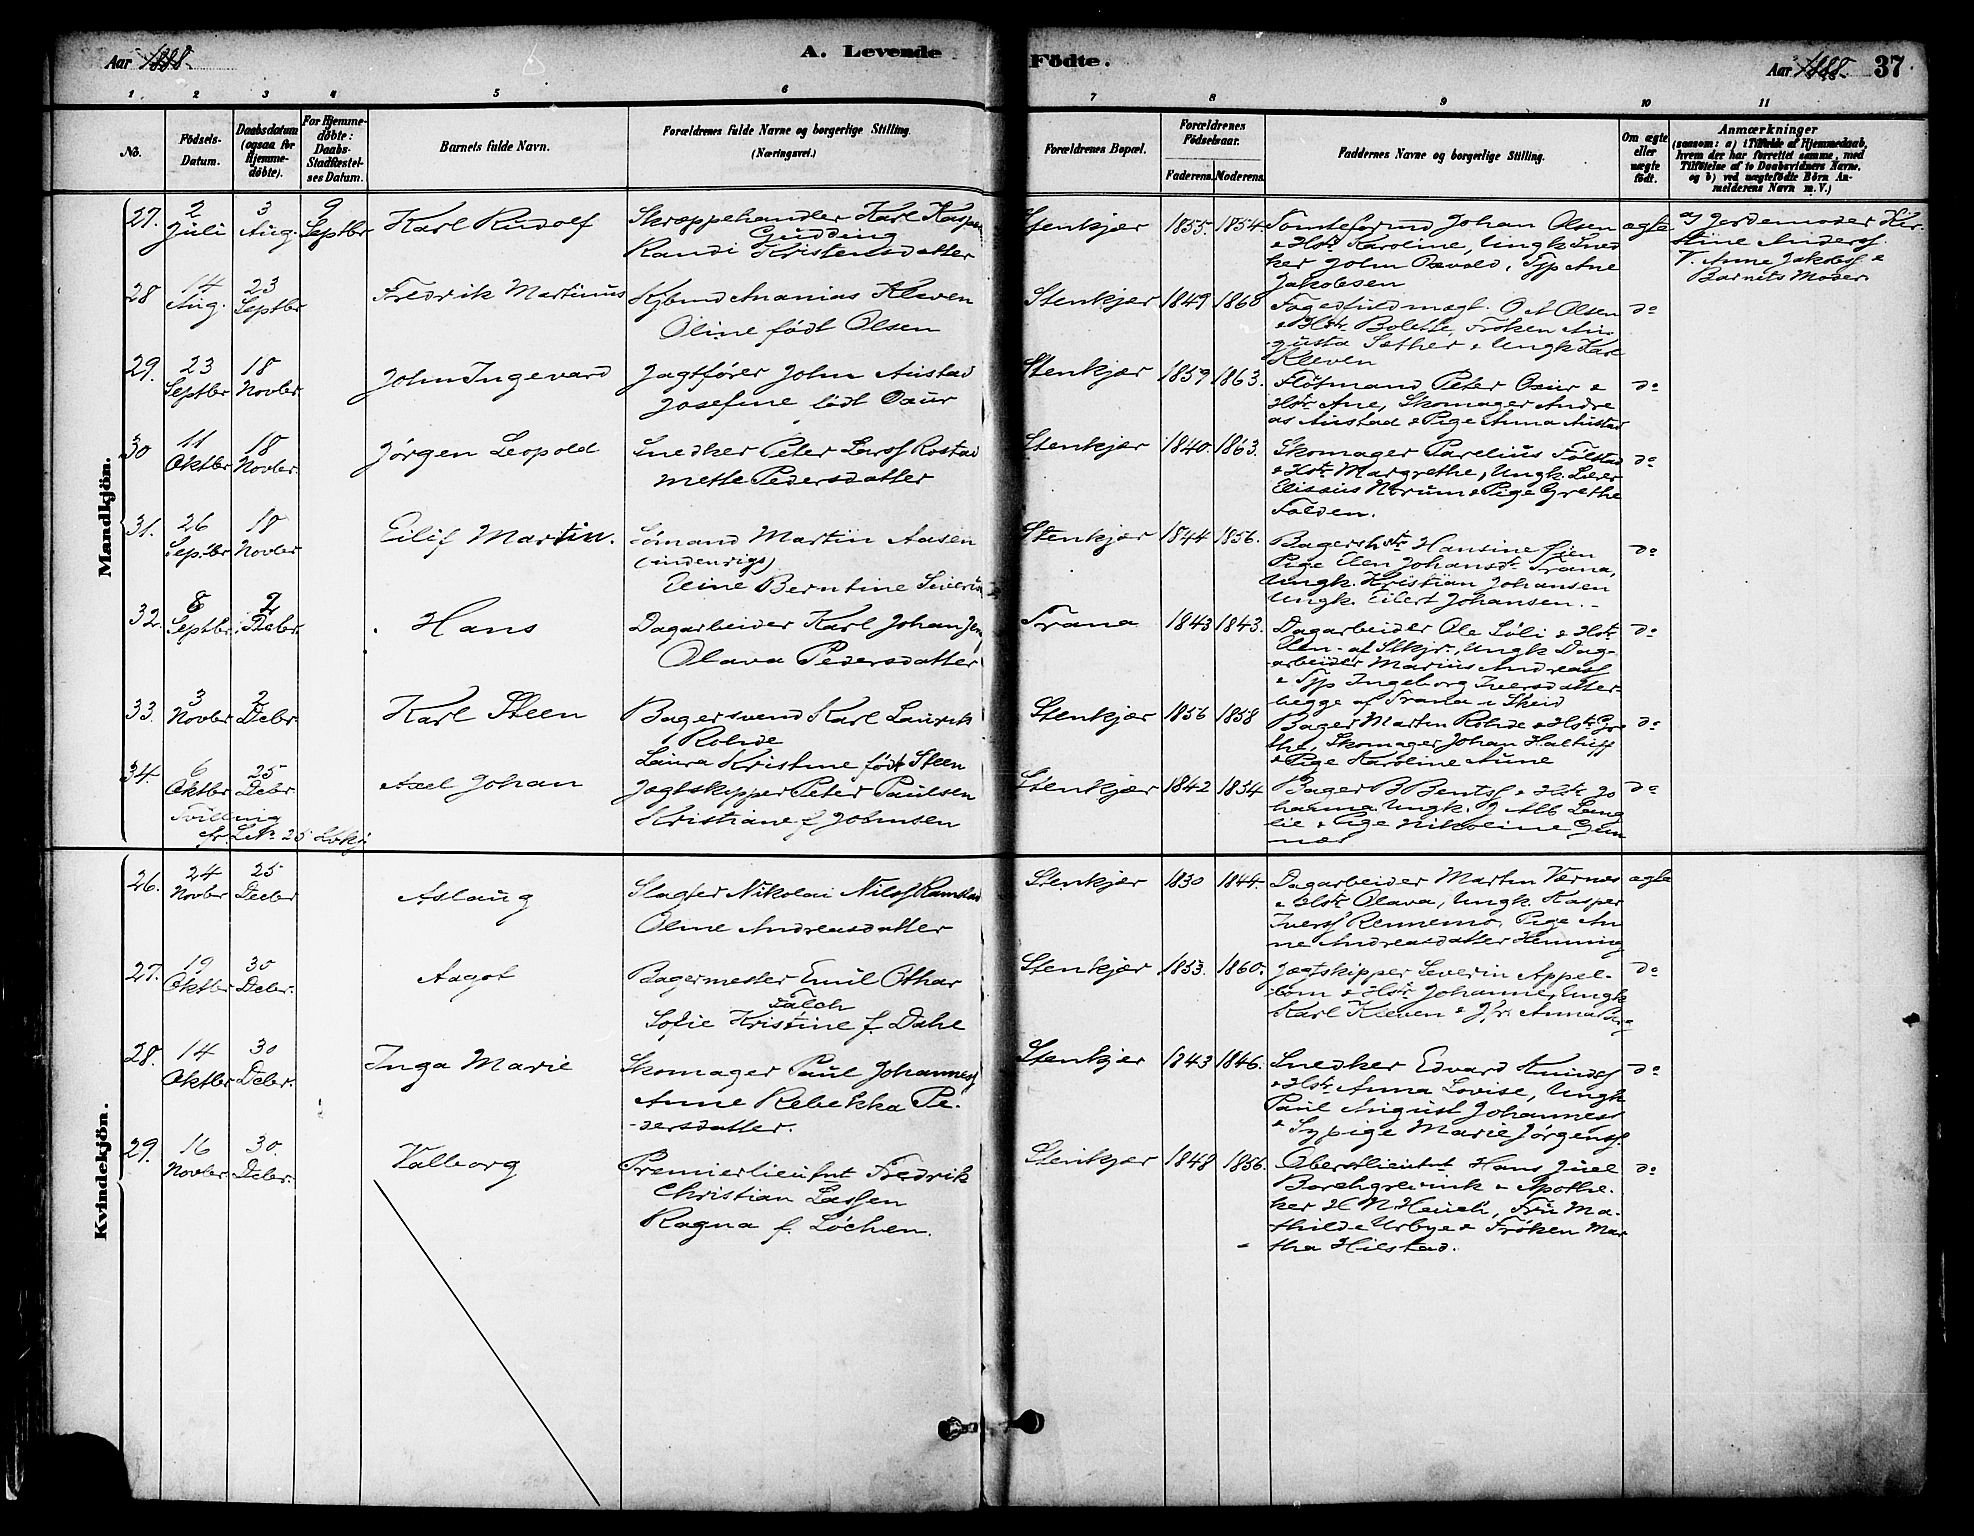 Aar 1888.
A. Levende
Födte.
Aar 1888.
37
1 2 3 4 5 6 7 8 9 10 11
No.
Födsels-Datum.
Daabsdatum (ogsaa for Hjemmedöbte).
For Hjemmedöbte: Daabs-Stadfæstelses Datum.
Barnets fulde Navn.
Forældrenes fulde Navne og borgerlige Stilling. (Næringsvei.)
Forældrenes Bopæl.
Forældrenes Födselsaar.
Faderens. Moderens.
Faddernes Navne og borgerlige Stilling.
Om ægte eller uægte födt.
Anmærkninger
(saasom: a) i Tilfælde af Hjemmedaab, hvem der har forrettet samme, med Tilföielse af to Daabsvidners Navne, og b) ved uægtefödte Börn Anmelderens Navn m. V.)
Mandkjön.
27. 2 Juli 3 Aug. 9 Septbr Karl Rudolf
Skræppehandler Karl Kasper
Gudding
Randi Kristensdatter
Stenkjær 1855. 1854.
Tomteformd Johan Olsen
& Hstr Karoline, Ungk Sned
ker John Oxvold, Syp Ane
Jakobsen
ægte
a) Jordemoder Kir-
stine Anderss.
V. Anne Jakobs &
Barnets Moder
28 14 Aug. 23 Septbr Fredrik Martinus
Kjbmd Ananias Kleven
Oline født Olsen
Stenkjær 1849 1860
Fogedfuldmægt. O A Olsen
& Hstr Bolette, Frøken Au-
gusta Sæther & Ungk Karl
Kleven
do
29. 23 Septbr 18 Novbr John Ingevard
Jagtfører John Austad
Josefine født Oxur
Stenkjær 1859 1863.
Fløtmand Peter Oxur &
Hstr Ane, Skomager Andre
as Austad & Pige Anna Austad
do
30 11 Oktbr 18 Novbr. Jørgen Leopold
Snedker Peter Larss Rostad
Mette Pedersdatter
Stenkjær 1840. 1863.
Skomager Parelius Følstad
& Hstr Margrethe, Ungk Lærer
Elisæus Norum & Pige Grethe
Folden.
do
31. 26 Septbr 18 Novbr Eilif Martin.
Sømand Martin Aasen
(indenrigs)
Eline Berntine Severins
Stenkjær 1844 1856.
Bagershstr Hansine Øien
Pige Elen Johansdr Trana,
Ungk. Kristian Johansen
Ungk. Eilert Johansen. -
do
32. 8 Septbr 2 Decbr. Hans
Dagarbeider Karl Johan Jens
Olava Pedersdatter
Trana 1843 1843.
Dagarbeider Ole Løli & Hstr
Elen - af Stkjr., Ungk Dag-
arbeider Marius Andreass
& Syp Ingeborg Iversdatter
begge af Trana i Skeid
do
33. 3 Novbr 2 Decbr. Karl Steen
Bagersvend Karl Laurik
Rohde
Laura Kristine født Steen
Stenkjær 1856 1858
Bager Martin Rohde & Hstr Gre
the, Skomager Johan Haltuff
& Pige Karoline Aune
do
34. 6 Oktbr 25 Decbr Axel Johan
Jagtskipper Peter Paulsen
Kristiane f. Johnsen
Tvilling
Stenkjær 1842 1854
Bager B Bentss & Hstr Jo
hanna. Ungk. J Alb Lang
lie & Pige Nikoline Gun
nær
do
Kvindekjön.
26. 24 Novbr 25 Decbr Aslaug
Slagter Nikolai Nilss Ramstad
Oline Andreasdatter
Stenkjær 1830 1844.
Dagarbeider Martin Værnes
& Hstr Olava, Ungk. Kasper
Iverss Rennemo, Pige An
ne Andreasdatter Henning
ægte
27. 19 Oktbr 30 Decbr. Aagot
Bagermester Emil Othar
Falch
Sofie Kristine f. Dahl
Stenkjær 1853. 1860.
Jægtskipper Severin Appel-
bom & Hstr Johanne, Ungk
Karl Kleven & Jfr. Anna Berg
do
28. 14 Oktbr 30 Decbr. Inga Marie
Skomager Paul Johanness
Anne Rebekka Pe-
dersdatter.
Stenkjær 1843 1846.
Snedker Edvard Knudss
& Hstr Anna Lovise, Ungk
Paul August Johanness
& Sypige Marie Jørgenss.
do
29. 16 Novbr 30. Decbr. Valborg
Premierlieutnt Fredrik
Christian Lassen
Ragna f. Løchen.
Stenkjær 1848 1856.
Oberstlieutnt Hans Juel
Borchgrevink & Apothe-
ker H N Heuch, Fru Ma-
thilde Urbye & Frøken Mar
tha Hilstad.
do